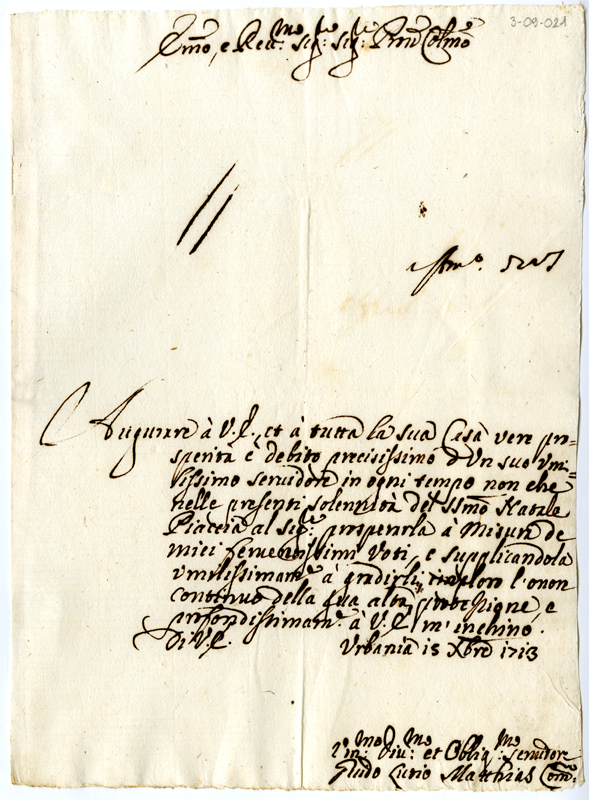 3-09-021
Emo, e Reu:mo Sig:re Sig:re Prōn Colmo
Augurare à V.E. et à tutta la sua Casa vere pro=
sperità è debito precisissimo d'un suo Vmi=
lissimo seruidore in ogni tempo non che
nelle presenti solennità del SSmo Natale
Piaccia al Sig:re prosperola à Misura de
miei feruentissimi Voti, e supplicandola
vmilissimamte à gradirli, imploro l'onor
continuo della sua alta protezzione, e
profondissimamte à V.E. m'inchino.
Di V.E. Vrbania 15 Xbre 1713
Vm:mo Diu:mo et Obblig:mo Seruidore
Guido Curio Matthias Com: